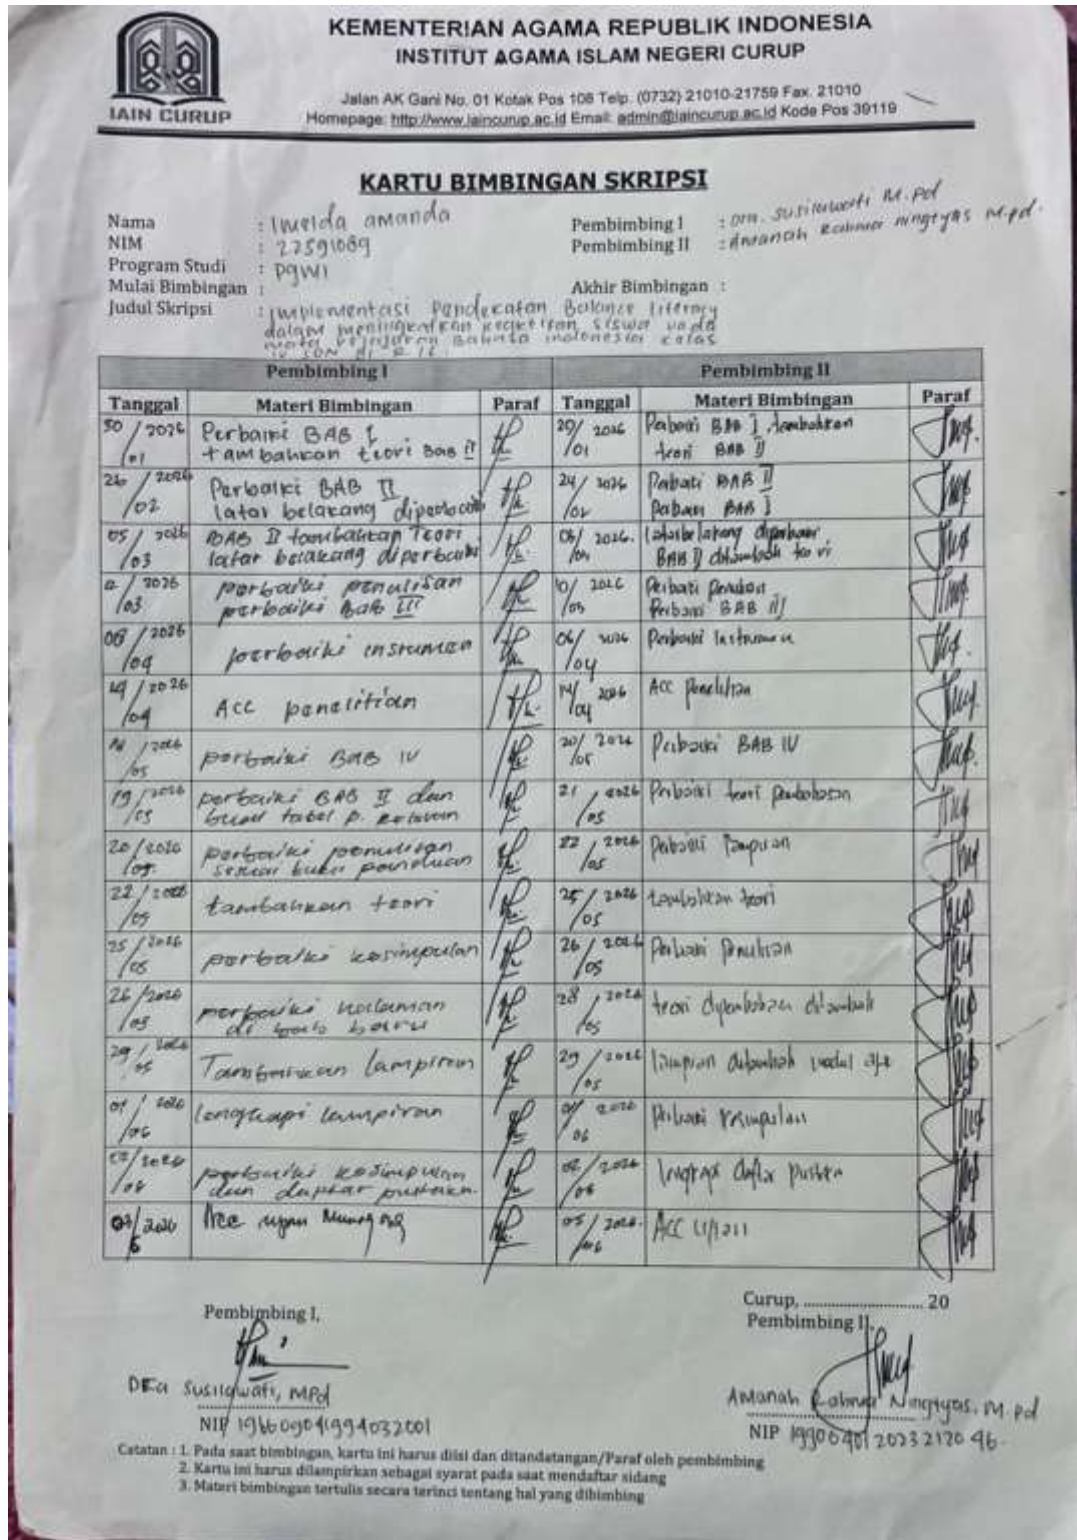 KEMENTERIAN AGAMA REPUBLIK INDONESIA
INSTITUT AGAMA ISLAM NEGERI CURUP
Jalan AK Gani No. 01 Kotak Pos 108 Telp. (0732) 21010-21759 Fax. 21010
Homepage: http://www.iaincurup.ac.id Email: admin@iaincurup.ac.id Kode Pos 39119
IAIN CURUP
KARTU BIMBINGAN SKRIPSI
Nama : Imelda amanda
NIM : 22591089
Program Studi : PGMI
Mulai Bimbingan :
Judul Skripsi : Implementasi Pendekatan Balance literacy
dalam meningkatkan keaktifan siswa pada
mata pelajaran Bahasa indonesia kelas
IV SDN di
Pembimbing I : Dra. Susilawati M.Pd
Pembimbing II : Amanah Rahma Ningtyas M.Pd.
Akhir Bimbingan :
Pembimbing I Pembimbing II
Tanggal Materi Bimbingan Paraf Tanggal Materi Bimbingan Paraf
30/01 2026 Perbaiki BAB I
tambahkan teori Bab II
29/01 2026 Perbaiki BAB I tambahkan
teori BAB II
26/02 2026 Perbaiki BAB II
latar belakang diperbaiki
24/02 2026 Perbaiki BAB II
Perbaiki BAB I
05/03 2026 BAB II tambahkan Teori
latar belakang diperbaiki
2026. latar belakang diperbaiki
BAB II ditambah teori
/03 2026 perbaiki penulisan
perbaiki Bab III
10/03 2026 Perbaiki Penulisan
Perbaiki BAB III
08/04 2026 perbaiki insrumen
06/04 2026 Perbaiki Instrumen
14/04 2026 ACC penelitian
14/04 2026 ACC Penelitian
/05 2026 perbaiki BAB IV
20/05 2026 Perbaiki BAB IV
19/05 2026 perbaiki BAB II dan
buat tabel p. relevan
21/05 2026 Perbaiki teori pembahasan
20/05 2026 perbaiki penulisan
sesuai buku panduan
22/05 2026 Perbaiki lampiran
22/05 2026 tambahkan teori
25/05 2026 tambahkan teori
25/05 2026 perbaiki kesimpulan
26/05 2026 Perbaiki Penulisan
26/05 2026 perbaiki halaman
di bab baru
28/05 2026 teori dipembahasan ditambah
29/05 2026 Tambahkan lampiran
29/05 2026 lampiran ditambah modul ajar
01/06 2026 lengkapi lampiran
01/06 2026 Perbaiki kesimpulan
02/06 2026 perbaiki kesimpulan
dan daptar pustaka.
02/06 2026 lengkapi daftar pustaka
03/6 2026 Acc ujian Munaqosa
05/06 2026. ACC
Curup, 20
Pembimbing I,
Pembimbing II,
DRa Susilawati, MPd
NIP 196609041994032001
Amanah Rahma Ningtyas. M.Pd
NIP 19900401 2023212046.
Catatan : 1. Pada saat bimbingan, kartu ini harus diisi dan ditandatangan/Paraf oleh pembimbing
2. Kartu ini harus dilampirkan sebagai syarat pada saat mendaftar sidang
3. Materi bimbingan tertulis secara terinci tentang hal yang dibimbing